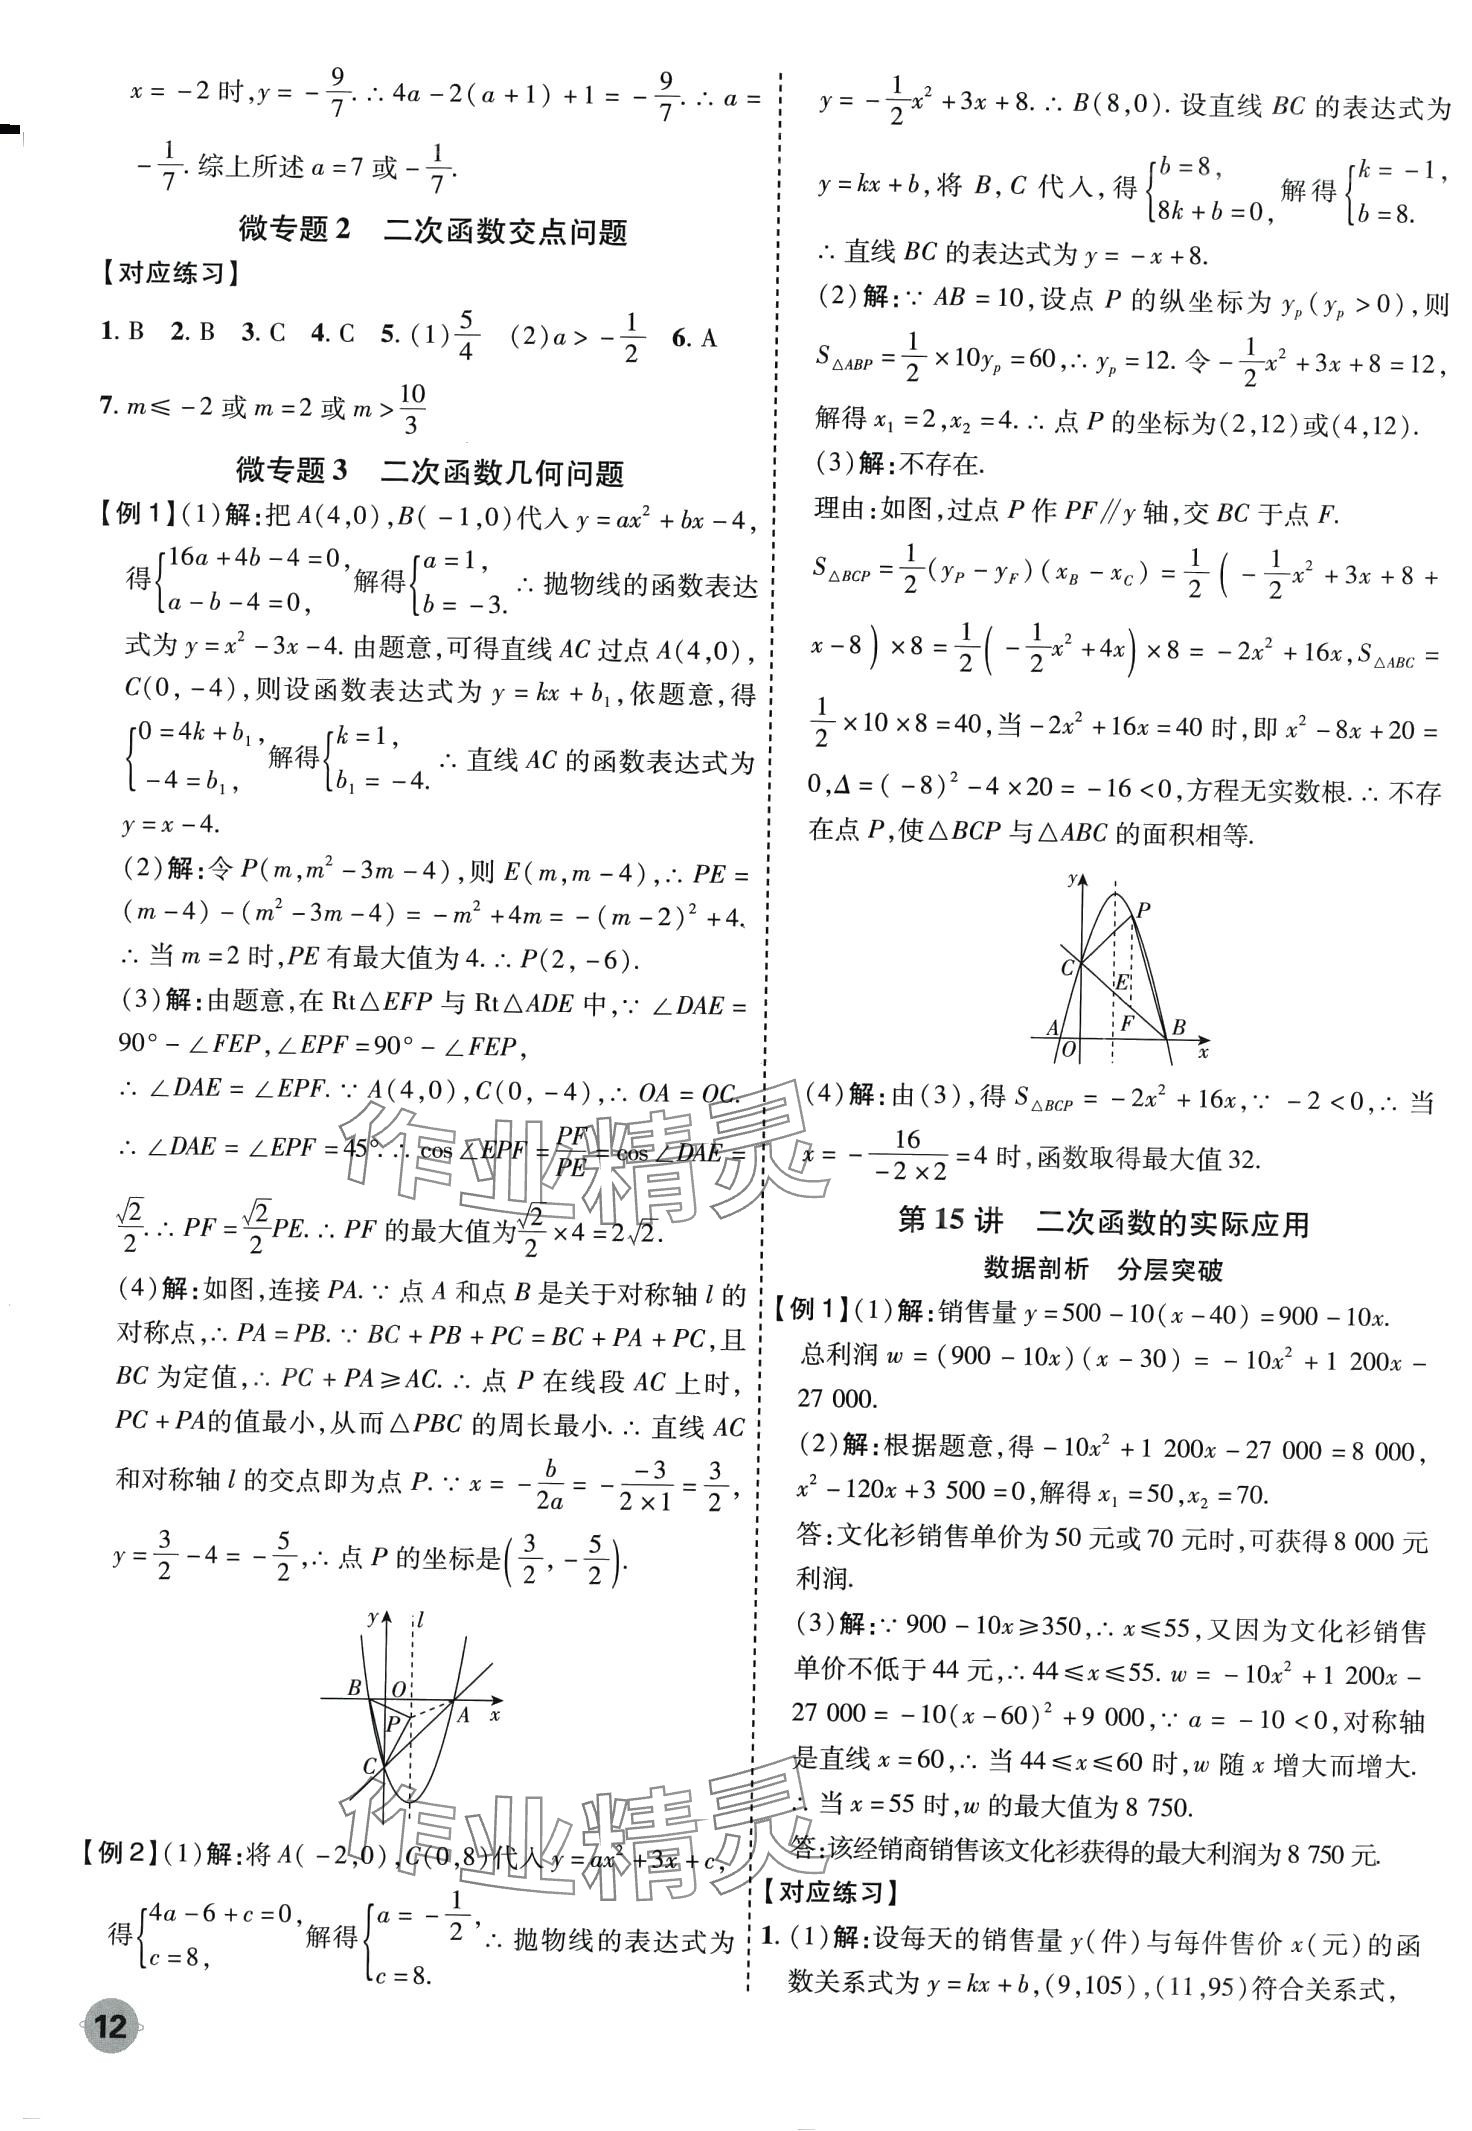 x=-2时,y=-9/7.∴4a-2(a+1)+1=-9/7.∴a=
-1/7.综上所述a=7或-1/7.
微专题2 二次函数交点问题
【对应练习】
1. B 2. B 3. C 4. C 5. (1)5/4 (2)a>-1/2 6. A
7. m≤-2或m=2或m>10/3
微专题3 二次函数几何问题
【例1】(1)解:把A(4,0),B(-1,0)代入y=ax²+bx-4,
得{16a+4b-4=0, a-b-4=0, 解得{a=1, b=-3. ∴抛物线的函数表达
式为y=x²-3x-4.由题意,可得直线AC过点A(4,0),
C(0,-4),则设函数表达式为y=kx+b₁,依题意,得
{0=4k+b₁, -4=b₁, 解得{k=1, b₁=-4. ∴直线AC的函数表达式为
y=x-4.
(2)解:令P(m,m²-3m-4),则E(m,m-4),∴PE=
(m-4)-(m²-3m-4)=-m²+4m=-(m-2)²+4.
∴当m=2时,PE有最大值为4.∴P(2,-6).
(3)解:由题意,在Rt△EFP与Rt△ADE中,∵∠DAE=
90°-∠FEP,∠EPF=90°-∠FEP,
∴∠DAE=∠EPF.∵A(4,0),C(0,-4),∴OA=OC.
∴∠DAE=∠EPF=45°.∴cos∠EPF=PF/PE=cos∠DAE=
√2/2.∴PF=√2/2PE.∴PF的最大值为√2/2×4=2√2.
(4)解:如图,连接PA.∵点A和点B是关于对称轴l的
对称点,∴PA=PB.∵BC+PB+PC=BC+PA+PC,且
BC为定值,∴PC+PA≥AC.∴点P在线段AC上时,
PC+PA的值最小,从而△PBC的周长最小.∴直线AC
和对称轴l的交点即为点P.∵x=-b/2a=-(-3)/(2×1)=3/2,
y=3/2-4=-5/2,∴点P的坐标是(3/2,-5/2).
y l
B O
P A x
C
【例2】(1)解:将A(-2,0),C(0,8)代入y=ax²+3x+c,
得{4a-6+c=0, c=8, 解得{a=-1/2, c=8. ∴抛物线的表达式为
12
y=-1/2x²+3x+8.∴B(8,0).设直线BC的表达式为
y=kx+b,将B,C代入,得{b=8, 8k+b=0, 解得{k=-1, b=8.
∴直线BC的表达式为y=-x+8.
(2)解:∵AB=10,设点P的纵坐标为yₚ(yₚ>0),则
S△ABP=1/2×10yₚ=60,∴yₚ=12.令-1/2x²+3x+8=12,
解得x₁=2,x₂=4.∴点P的坐标为(2,12)或(4,12).
(3)解:不存在.
理由:如图,过点P作PF∥y轴,交BC于点F.
S△BCP=1/2(y_P-y_F)(x_B-x_C)=1/2(-1/2x²+3x+8+
x-8)×8=1/2(-1/2x²+4x)×8=-2x²+16x,S△ABC=
1/2×10×8=40,当-2x²+16x=40时,即x²-8x+20=
0,Δ=(-8)²-4×20=-16<0,方程无实数根.∴不存
在点P,使△BCP与△ABC的面积相等.
y
P
C
E
A F B
O x
(4)解:由(3),得S△BCP=-2x²+16x,∵-2<0,∴当
x=-16/(-2×2)=4时,函数取得最大值32.
第15讲 二次函数的实际应用
数据剖析 分层突破
【例1】(1)解:销售量y=500-10(x-40)=900-10x.
总利润w=(900-10x)(x-30)=-10x²+1 200x-
27 000.
(2)解:根据题意,得-10x²+1 200x-27 000=8 000,
x²-120x+3 500=0,解得x₁=50,x₂=70.
答:文化衫销售单价为50元或70元时,可获得8 000元
利润.
(3)解:∵900-10x≥350,∴x≤55,又因为文化衫销售
单价不低于44元,∴44≤x≤55.w=-10x²+1 200x-
27 000=-10(x-60)²+9 000,∵a=-10<0,对称轴
是直线x=60,∴当44≤x≤60时,w随x增大而增大.
∴当x=55时,w的最大值为8 750.
答:该经销商销售该文化衫获得的最大利润为8 750元.
【对应练习】
1. (1)解:设每天的销售量y(件)与每件售价x(元)的函
数关系式为y=kx+b,(9,105),(11,95)符合关系式,
作业精灵
作业精灵